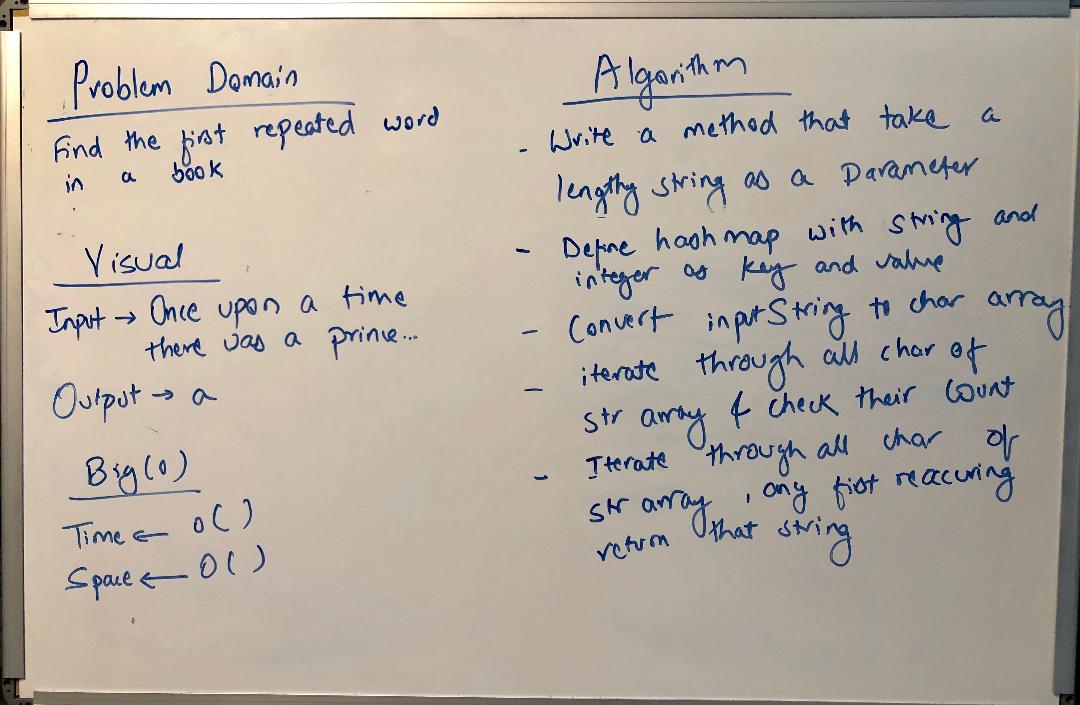 Problem Domain
Find the first repeated word
in a book
Visual
Input → Once upon a time
there was a prince...
Output → a
Big(o)
Time ← o( )
Space ← O( )
Algorithm
- Write a method that take a
lengthy string as a Parameter
- Define hashmap with string and
integer as key and value
- Convert inputString to char array
- iterate through all char of
str array & check their count
- Iterate through all char of
str array, any first reaccuring
return that string